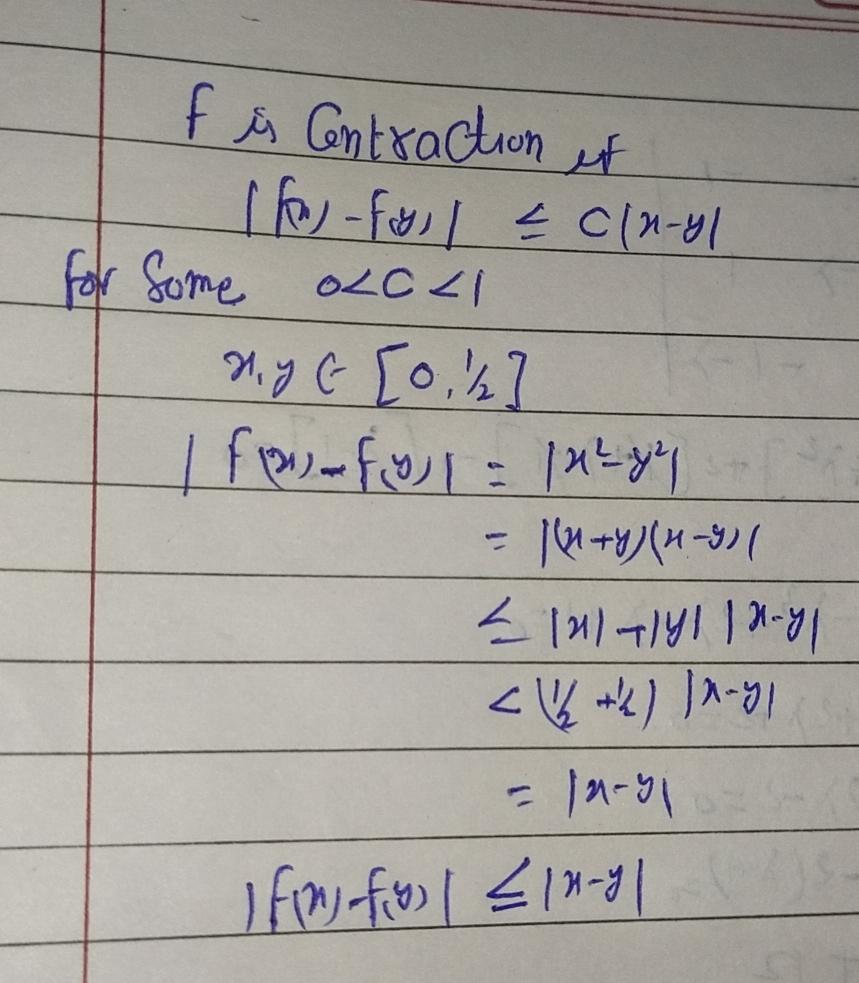 f is Contraction if
|f(x)-f(y)| ≤ C|x-y|
for Some 0<C<1
x,y ∈ [0,1/2]
|f(x)-f(y)| = |x²-y²|
= |(x+y)(x-y)|
≤ |x|+|y| |x-y|
< |1/2+1/2| |x-y|
= |x-y|
|f(x)-f(y)| ≤ |x-y|